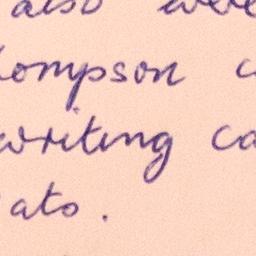 also were
ompson
writing ca
ats.